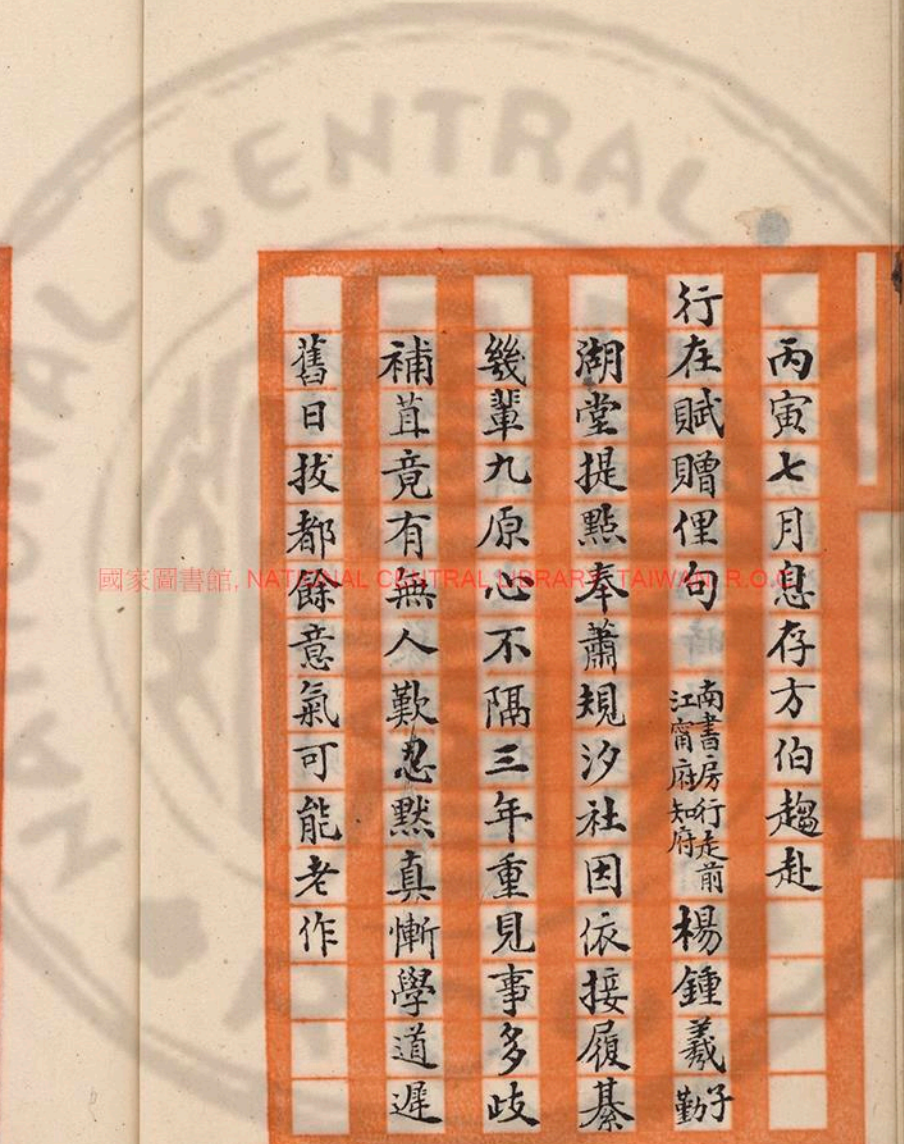 丙寅七月息存方伯趨赴
行在賦贈俚句 南書房行走前江甯府知府 楊鍾羲 子勤
湖堂提點奉蕭規汐社因依接履綦
幾輩九原心不隔三年重見事多歧
補苴竟有無人歎忍默真慚學道遲
舊日拔都餘意氣可能老作
國家圖書館, NATIONAL CENTRAL LIBRARY, TAIWAN, R.O.C.
NATIONAL CENTRAL